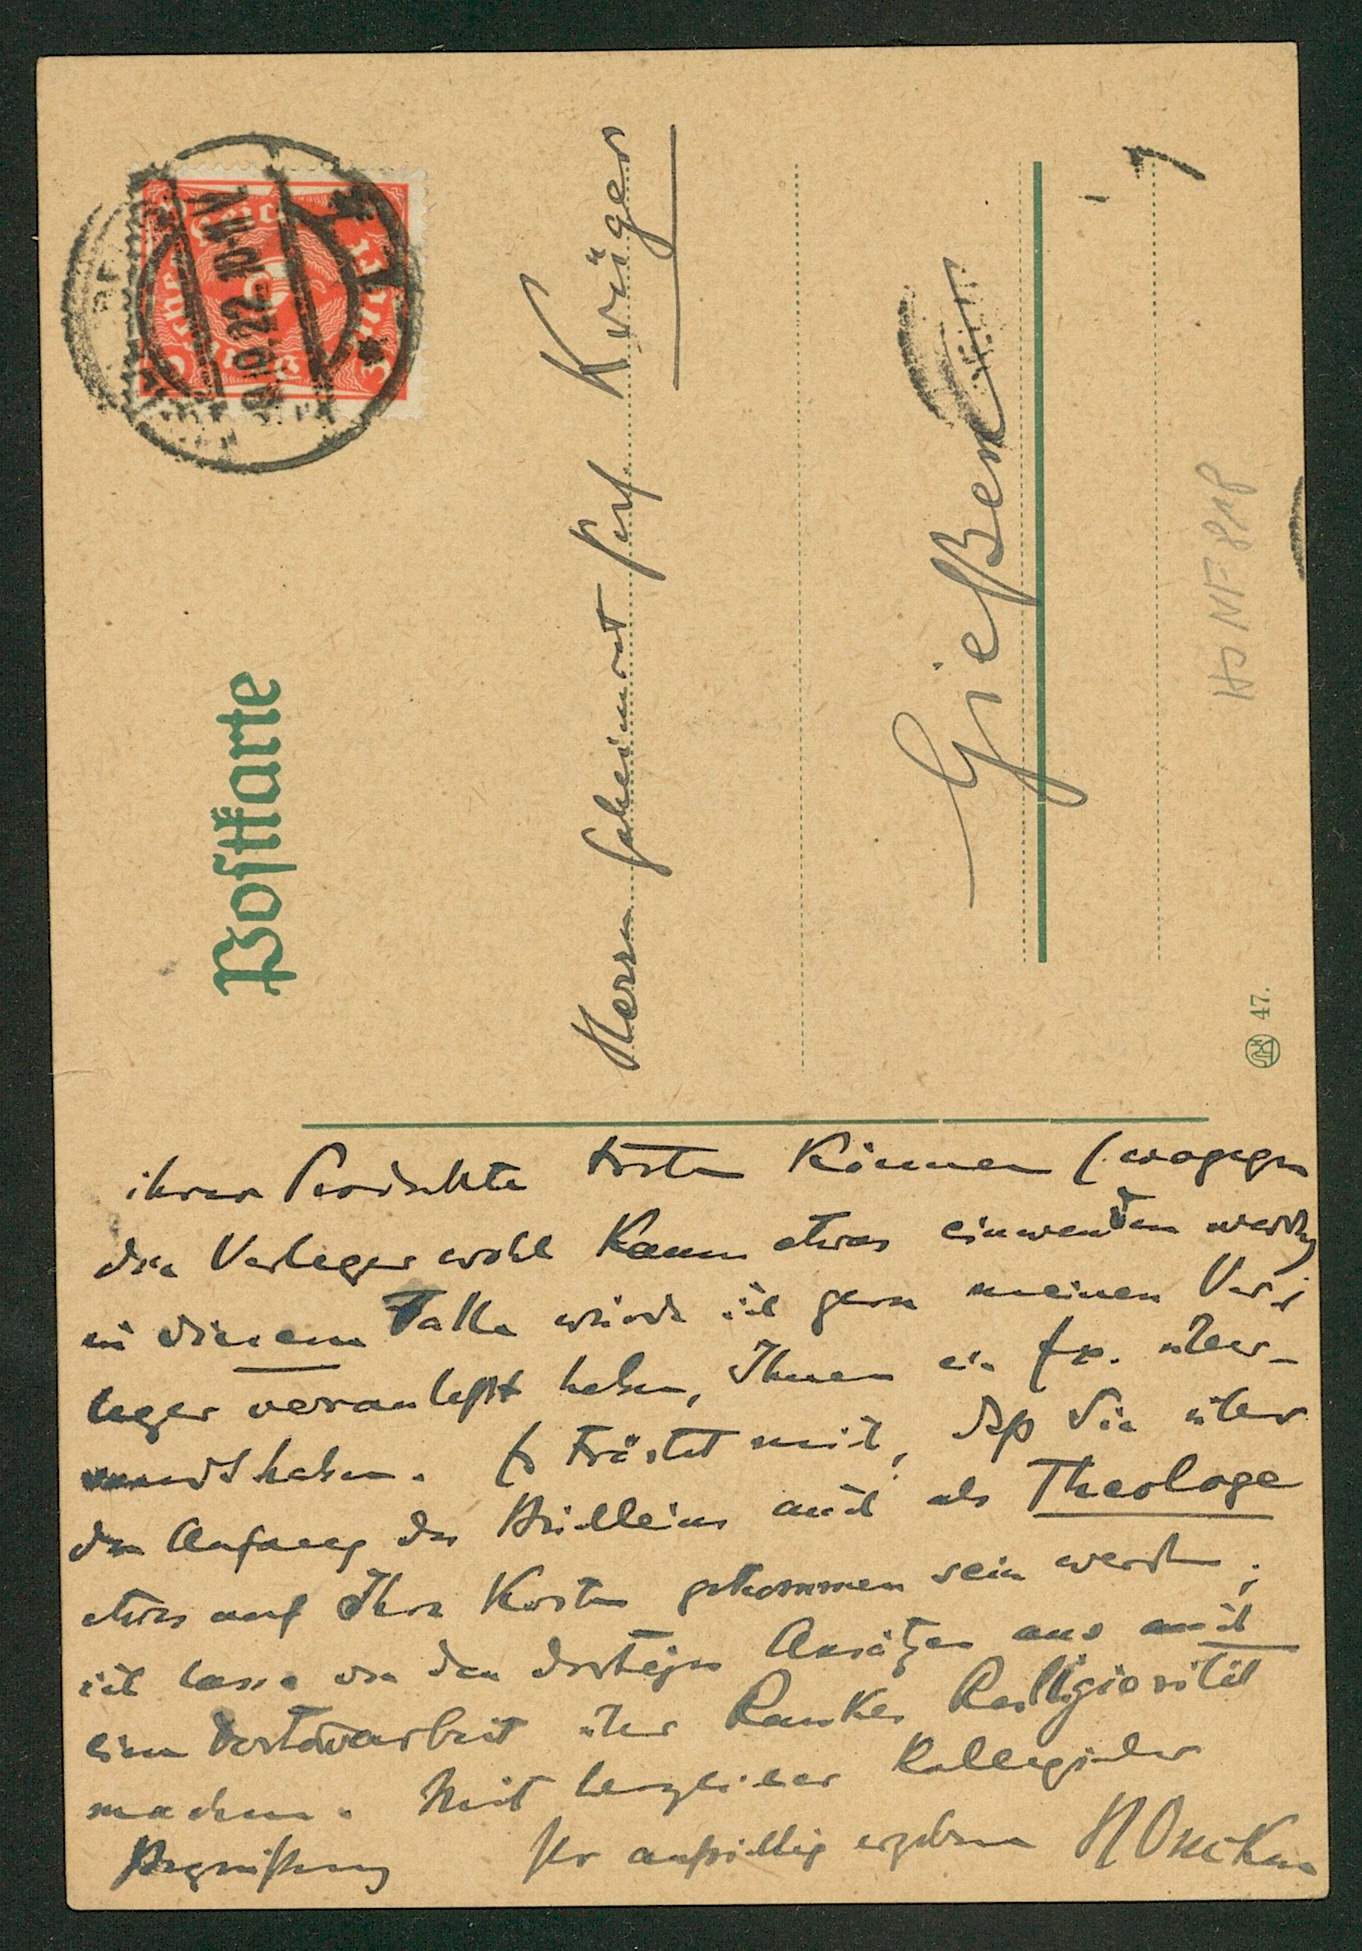 Postkarte
Reich
3
10.22. 10-11V.
Herrn Geheimrat Prof. Krüger
Gießen
Hs NF 818
47.
ihrer Produkte trösten können (wogegen
die Verleger wohl kaum etwas einwenden werden)
in diesem Falle würde ich gern meinen Ver-
leger veranlaßt haben, Ihnen ein Ex. über-
sandt haben. Es tröstet mich, daß Sie über
den Anfang des Büchleins auch als Theologe
etwas auf Ihre Kosten gekommen sein werden;
ich lasse von den dortigen Ansätzen aus auch
eine Doktorarbeit über Rankes Religiosität
machen. Mit herzlicher kollegialer
Begrüßung Ihr aufrichtig ergebener HOncken